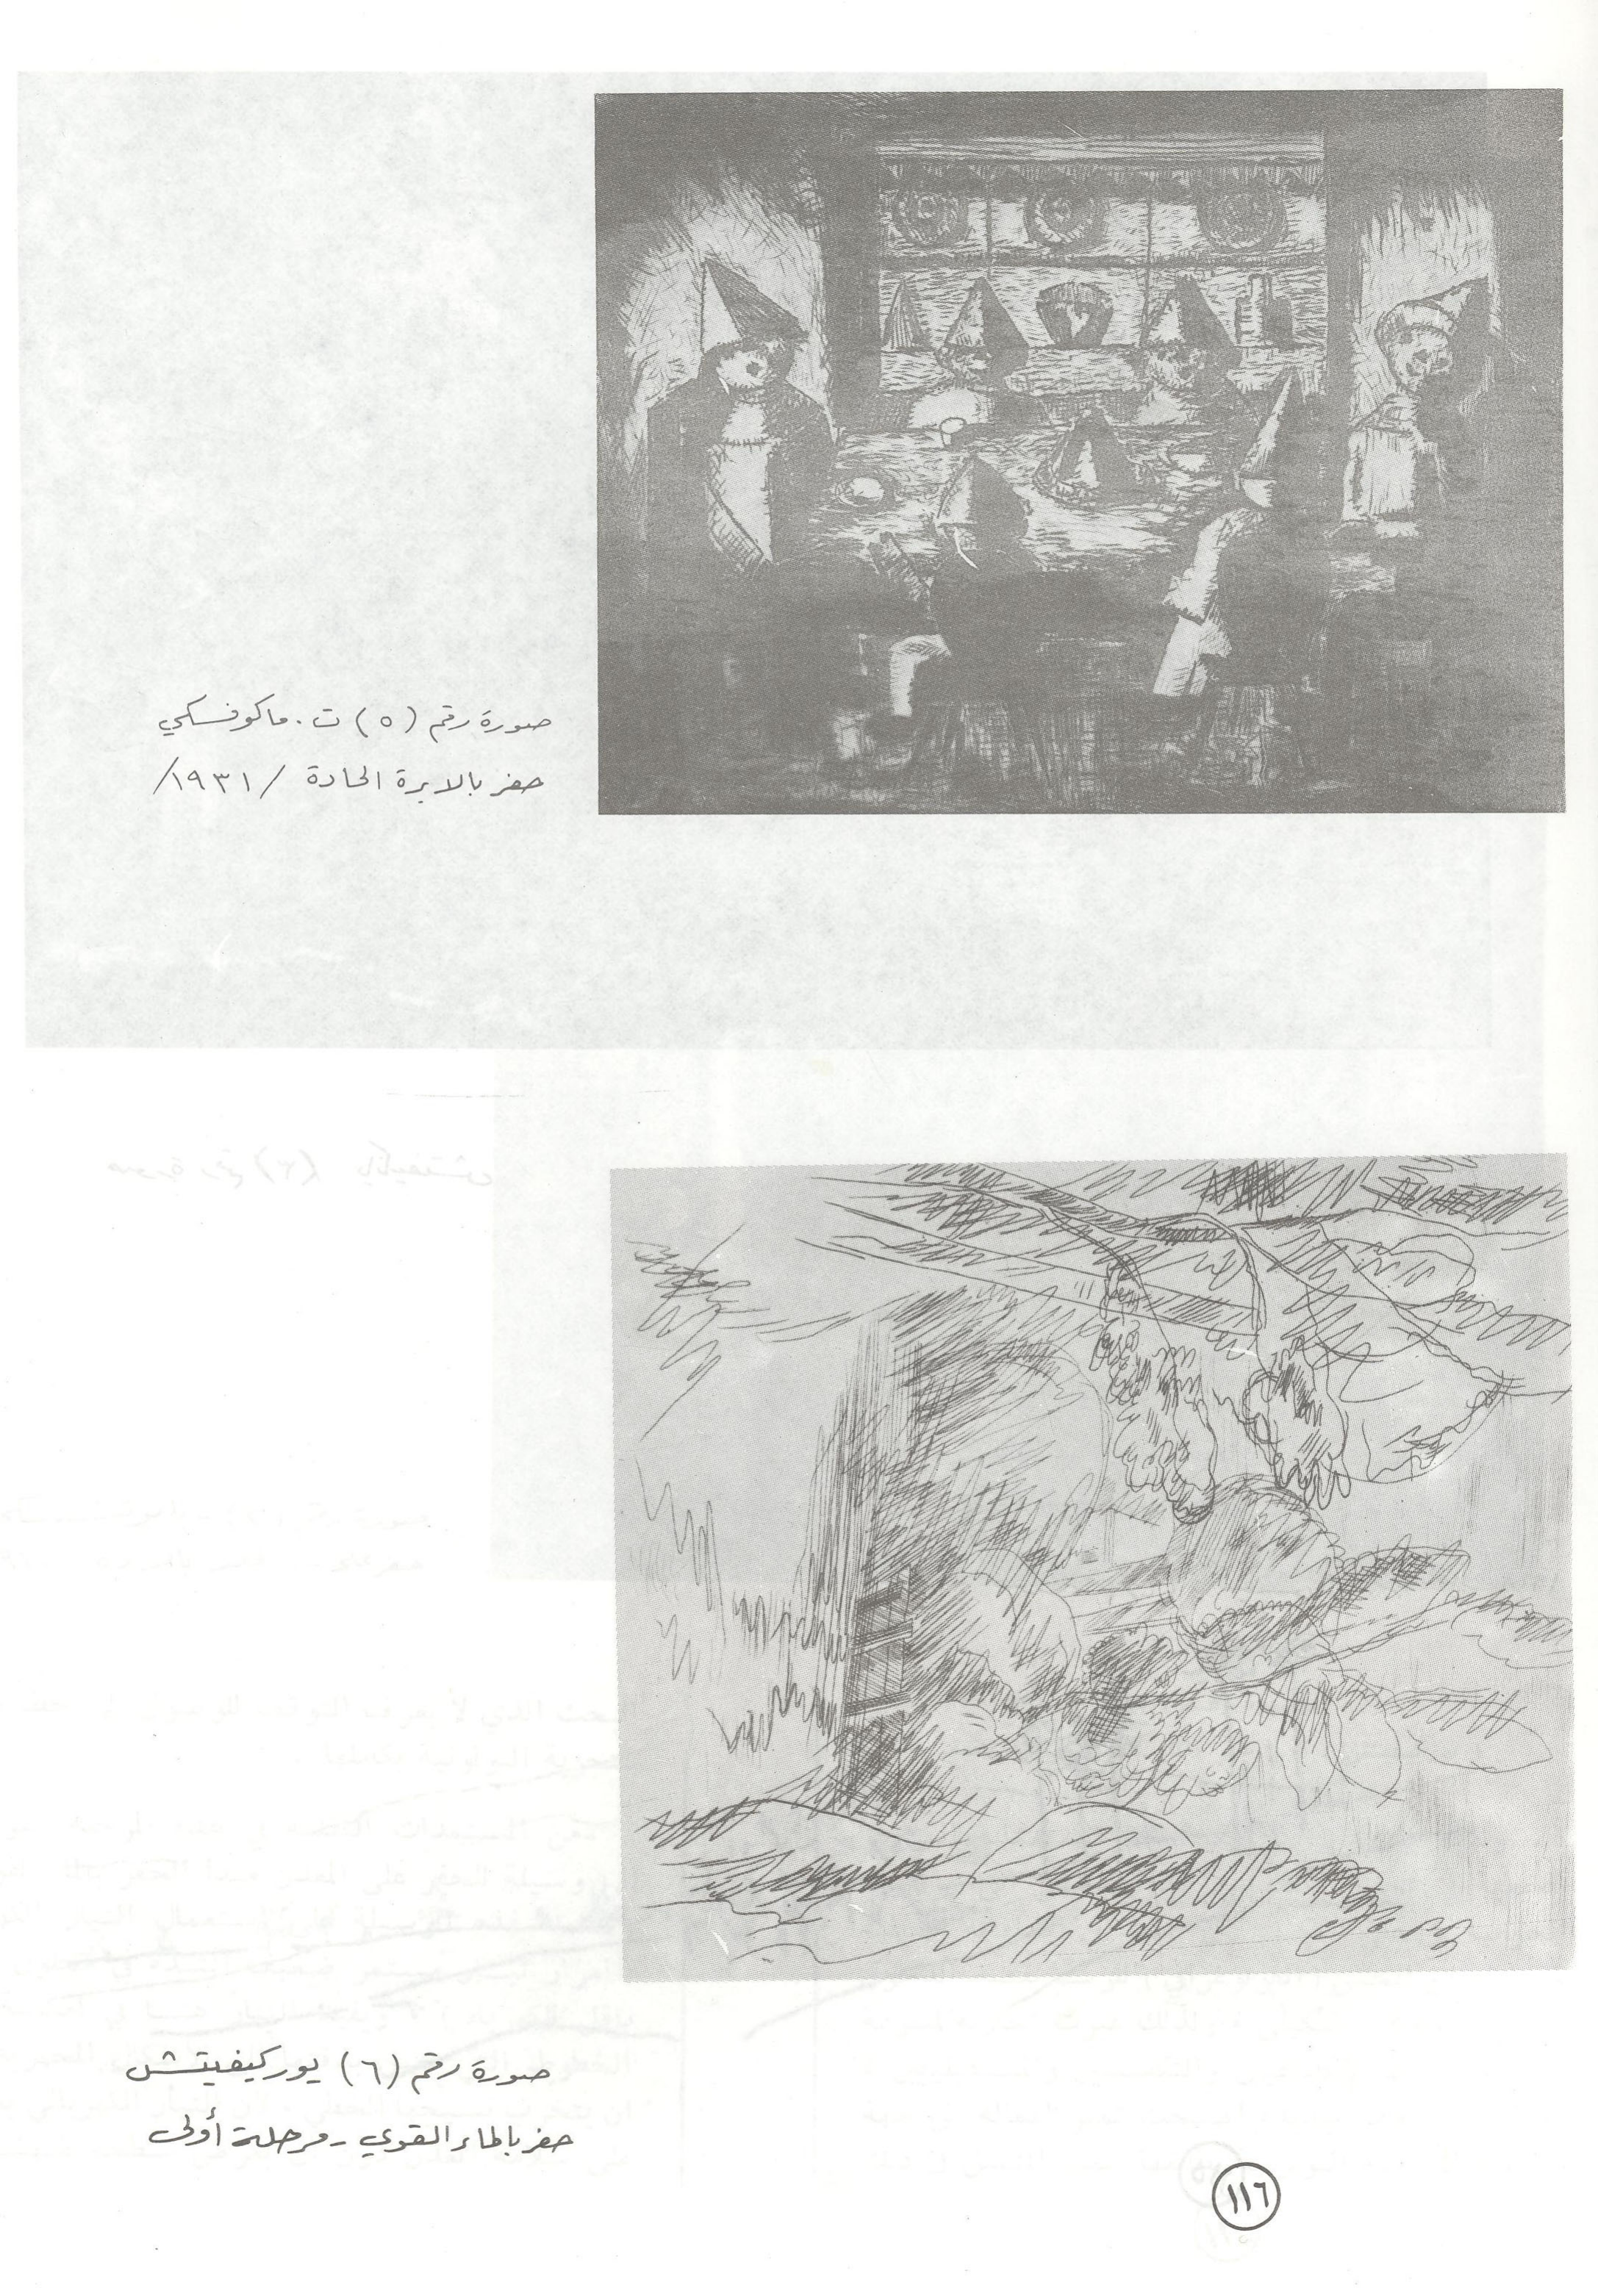 صورة رقم (٥) ت. ماكوفسكي
حفر بالابرة الحادة /١٩٣١/
صورة رقم (٦) يوركيفيتش
حفر بالماء القوي - مرحلة أولى
١١٦